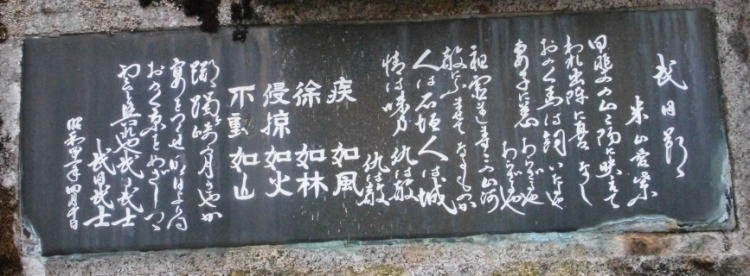 武田節
米山愛紫
甲斐の山々陽に映えて
われ出陣に憂なし
おのおの馬は飼いたるや
妻子に恙あらざるや
あらざるや
祖霊ましますこの山河
敵にふませてなるものか
人は石垣人は城
情は味方仇は敵
仇は敵
疾如風
徐如林
侵掠如火
不動如山
躑躅崎の月さやか
宴をつくせ明日よりは
おのおの京をめざしつつ
雲と興れや武田武士
武田武士
昭和 四月十日